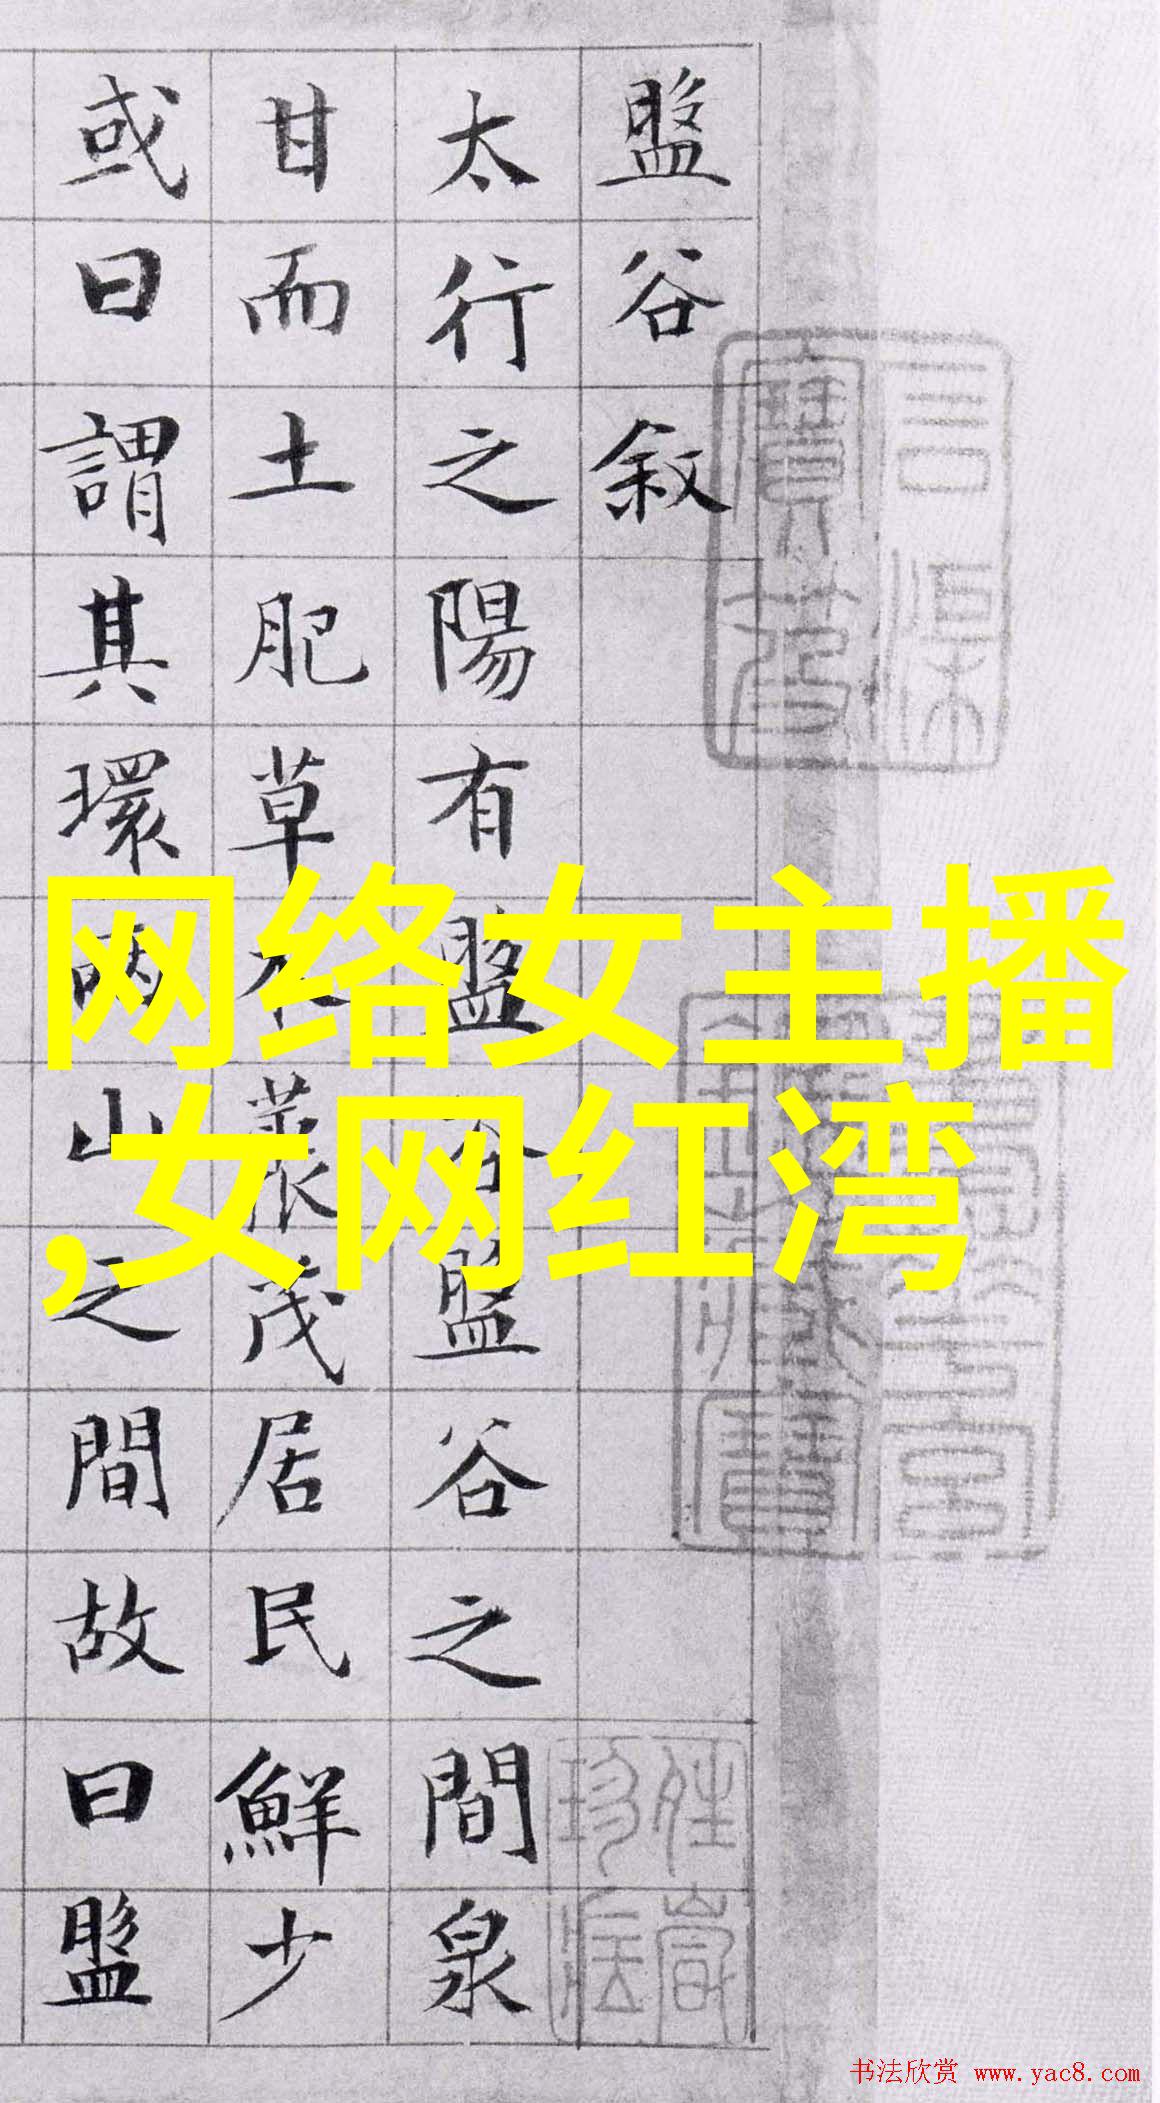 盤谷敘
太行之陽有盤谷盤谷之間泉
甘而土肥草木藂茂居民鮮少
或曰謂其環兩山之間故曰盤
网络女主播
,女网红湾
书法欣赏 www.yac8.com